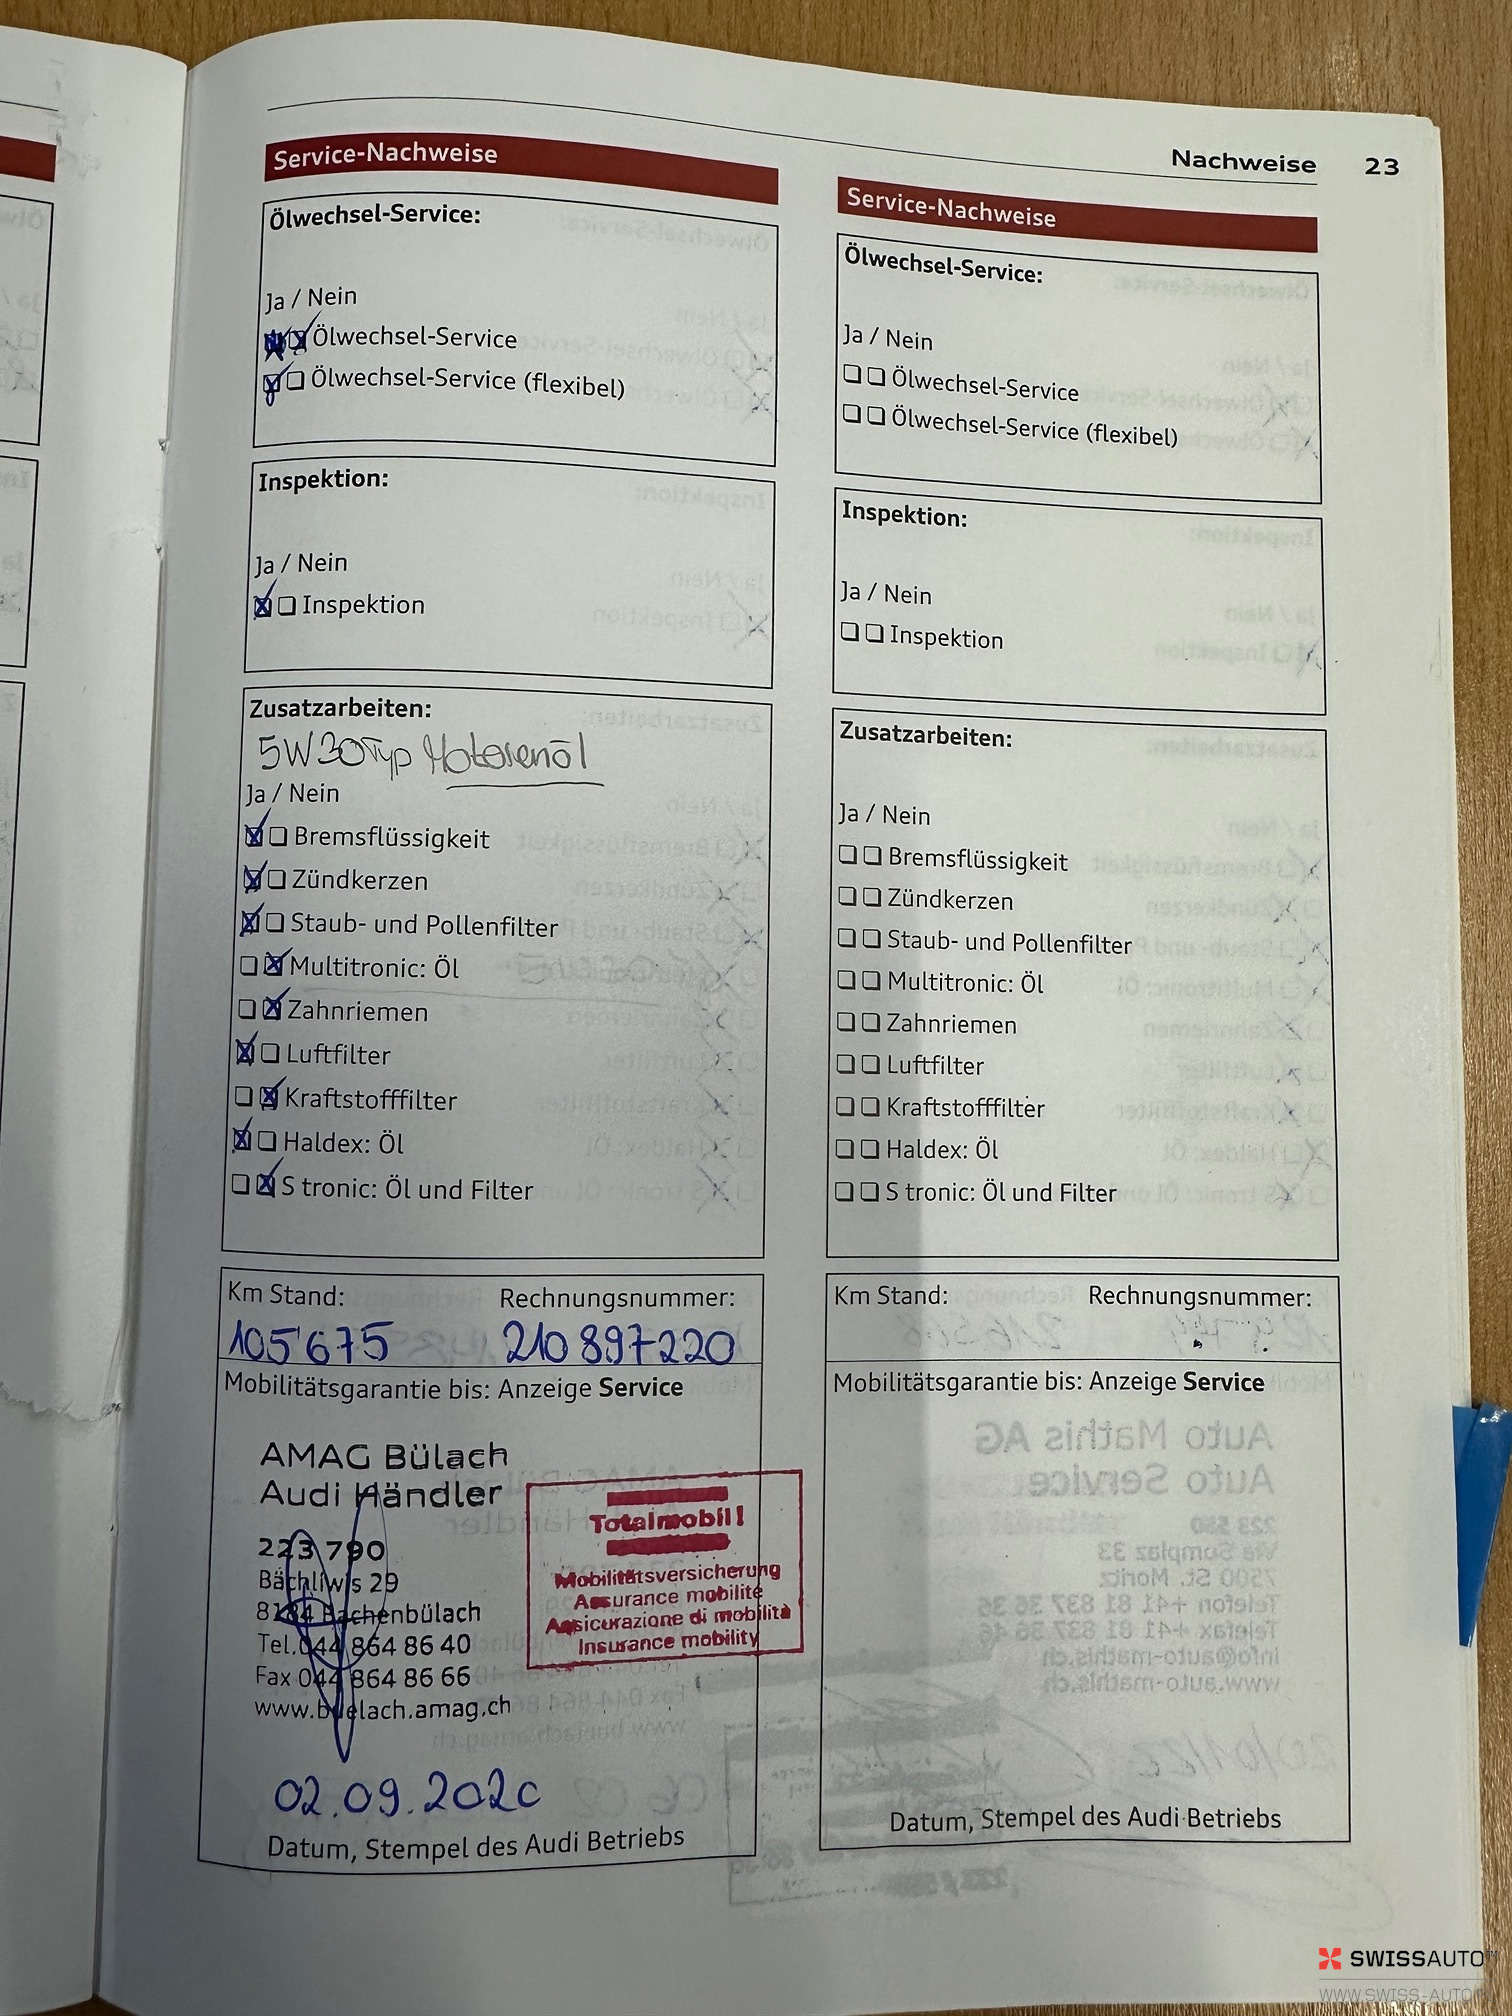 Nachweise 23
Service-Nachweise
Ölwechsel-Service:
Ja / Nein
Ölwechsel-Service
Ölwechsel-Service (flexibel)
Inspektion:
Ja / Nein
Inspektion
Zusatzarbeiten:
5W30Typ Motorenöl
Ja / Nein
Bremsflüssigkeit
Zündkerzen
Staub- und Pollenfilter
Multitronic: Öl
Zahnriemen
Luftfilter
Kraftstofffilter
Haldex: Öl
S tronic: Öl und Filter
Km Stand: Rechnungsnummer:
105'675 210897220
Mobilitätsgarantie bis: Anzeige Service
AMAG Bülach
Audi Händler
223 790
Bächliwis 29
8184 Bachenbülach
Tel. 044 864 86 40
Fax 044 864 86 66
www.buelach.amag.ch
Totalmobil!
Mobilitätsversicherung
Assurance mobilité
Assicurazione di mobilità
Insurance mobility
02.09.2020
Datum, Stempel des Audi Betriebs
Service-Nachweise
Ölwechsel-Service:
Ja / Nein
Ölwechsel-Service
Ölwechsel-Service (flexibel)
Inspektion:
Ja / Nein
Inspektion
Zusatzarbeiten:
Ja / Nein
Bremsflüssigkeit
Zündkerzen
Staub- und Pollenfilter
Multitronic: Öl
Zahnriemen
Luftfilter
Kraftstofffilter
Haldex: Öl
S tronic: Öl und Filter
Km Stand: Rechnungsnummer:
Mobilitätsgarantie bis: Anzeige Service
Datum, Stempel des Audi Betriebs
SWISSAUTO
WWW.SWISS-AUTO